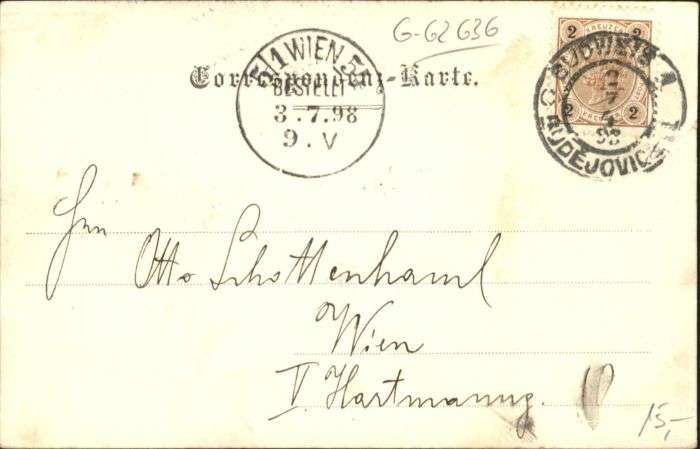 G-G2 636
Correspondenz-Karte.
5/1 WIEN 5
BESTELLT
3.7.98
9.V
2 KREUZER 2
2 2
BUDWEIS 1
2
7
98
BUDĚJOVICE 1
Otto Schottenhaml
Wien
V. Hartmanng.
15,-